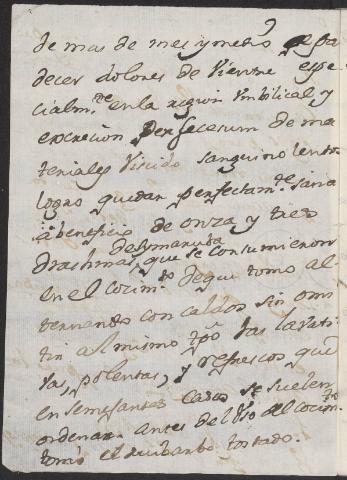 de mas de mes y medio de pa
decer dolores de Vientre espe
cialm.te en la region Umbilical y
excrecion per secessum de ma
teriales Viscido sanguino lentos
logro quedar perfectam.te sana
a beneficio de onza y tres
drachmas de Symaruba, que se consumieron
en el cocim.to de que tomo al
ternando con caldos sin omi
tir al mismo tpo las lavati
vas, polentas, y refrescos que
en semejantes casos se suelen
ordenar. antes del Uso del cocim.to
tomó el ruibarbo tostado.